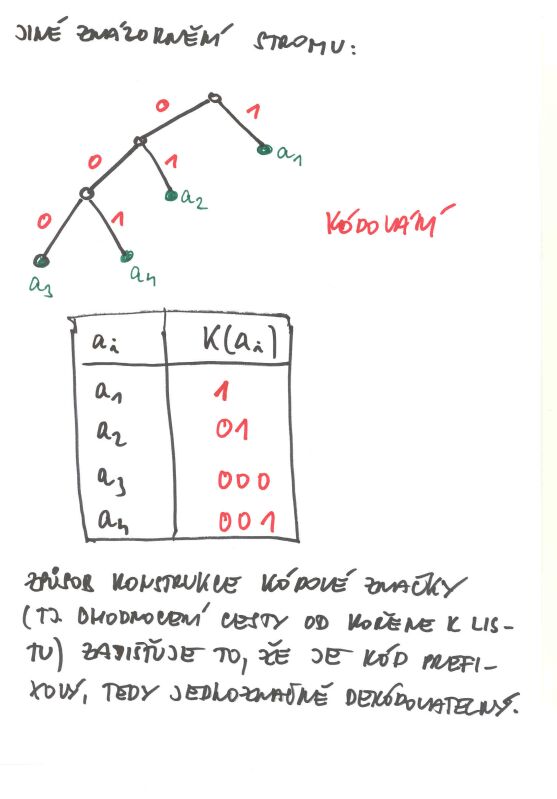 JINÉ ZNÁZORNĚNÍ STROMU:
0 1
a1
0 1
a2
0 1
a3
a4
KÓDOVÁNÍ
ai K(ai)
a1 1
a2 01
a3 000
a4 001
ZPŮSOB KONSTRUKCE KÓDOVÉ ZNAČKY
(TJ. OHODNOCENÍ CESTY OD KOŘENE K LIS-
TU) ZAJIŠŤUJE TO, ŽE JE KÓD PREFI-
XOVÝ, TEDY JEDNOZNAČNĚ DEKÓDOVATELNÝ.